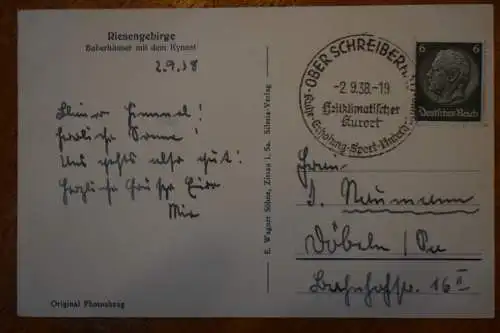 Riesengebirge
Baberhäuser mit dem Kynast
2.9.38
Blauer Himmel!
Herrliche Sonne!
Uns gehts also gut!
Herzliche Grüsse Eure
Mia
Original Photoabzug
E. Wagner Söhne, Zittau i. Sa. Silesia-Verlag
OBER SCHREIBERH
-2.9.38.-19
Heilklimatischer
Kurort
Ruhe-Erholung-Sport
6 6
Deutsches Reich
Frau
J. Naumann
Döbeln/Sa
Bahnhofstr. 16 II